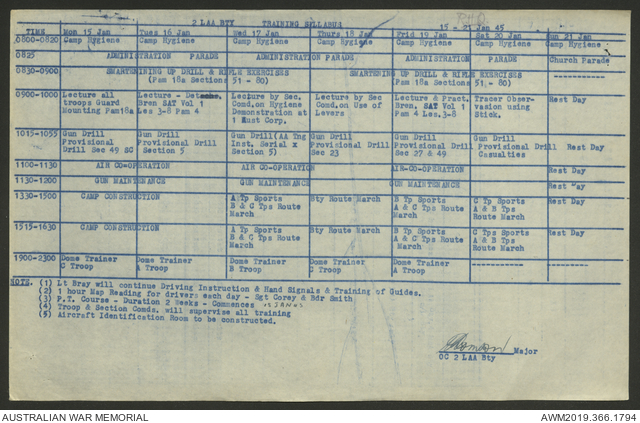 RHQ
2 LAA BTY TRAINING SYLLABUS 15 - 21 JAN 45
TIME Mon 15 Jan Tues 16 Jan Wed 17 Jan Thurs 18 Jan Frid 19 Jan Sat 20 Jan Sun 21 Jan
0800-0820 Camp Hygiene Camp Hygiene Camp Hygiene Camp Hygiene Camp Hygiene Camp Hygiene Camp Hygiene
0825 ADMINISTRATION PARADE ADMINISTRATION PARADE ADMINISTRATION PARADE Church Parade
0830-0900 SMARTENING UP DRILL & RIFLE EXERCISES SMARTENING UP DRILL & RIFLE EXERCISES ----------
(Pam 18a Sections 51 - 80) (Pam 18a Sections 51 - 80)
0900-1000 Lecture all Lecture - Lecture by Sec Lecture by Sec Lecture & Pract. Tracer Obser- Rest Day
troops Guard Bren SAT Vol 1 Comd, on Hygiene Comd, on Use of Bren, SAT Vol 1 vation using
Mounting Pam18a Les 3-8 Pam 4 Demonstration at Levers Pam 4 Les, 3-8 Stick.
1 Aust Corp.
1015-1055 Gun Drill Gun Drill Gun Drill(AA Tng Gun Drill Gun Drill Gun Drill
Provisional Provisional Drill Inst. Serial x Provisional Drill Provisional Drill Provisional Drill Rest Day
Drill Sec 49 50 Section 5 Section 5) Sec 23 Sec 27 & 49 Casualties
1100-1130 AIR CO-OPERATION AIR CO-OPERATION AIR CO-OPERATION Rest Day
1130-1200 GUN MAINTENANCE GUN MAINTENANCE GUN MAINTENANCE Rest Day
1330-1500 CAMP CONSTRUCTION A Tp Sports Bty Route March B Tp Sports C Tp Sports Rest Day
B & C Tps Route A & C Tps Route A & B Tps
March March Route March
1515-1630 CAMP CONSTRUCTION A Tp Sports Bty Route March B Tp Sports C Tp Sports Rest Day
B & C Tps Route A & C Tps Route A & B Tps
March March Route March
1900-2300 Dome Trainer Dome Trainer Dome Trainer Dome Trainer Dome Trainer ---------- ----------
C Troop A Troop B Troop C Troop A Troop
NOTE. (1) Lt Bray will continue Driving Instruction & Hand Signals & Training of Guides.
(2) 1 hour Map Reading for drivers each day - Sgt Corey & Bdr Smith
(3) P.T. Course - Duration 2 Weeks - Commences 15 JAN 45
(4) Troop & Section Comds. will supervise all training
(5) Aircraft Identification Room to be constructed.
Major
OC 2 LAA Bty
AUSTRALIAN WAR MEMORIAL AWM2019.366.1794